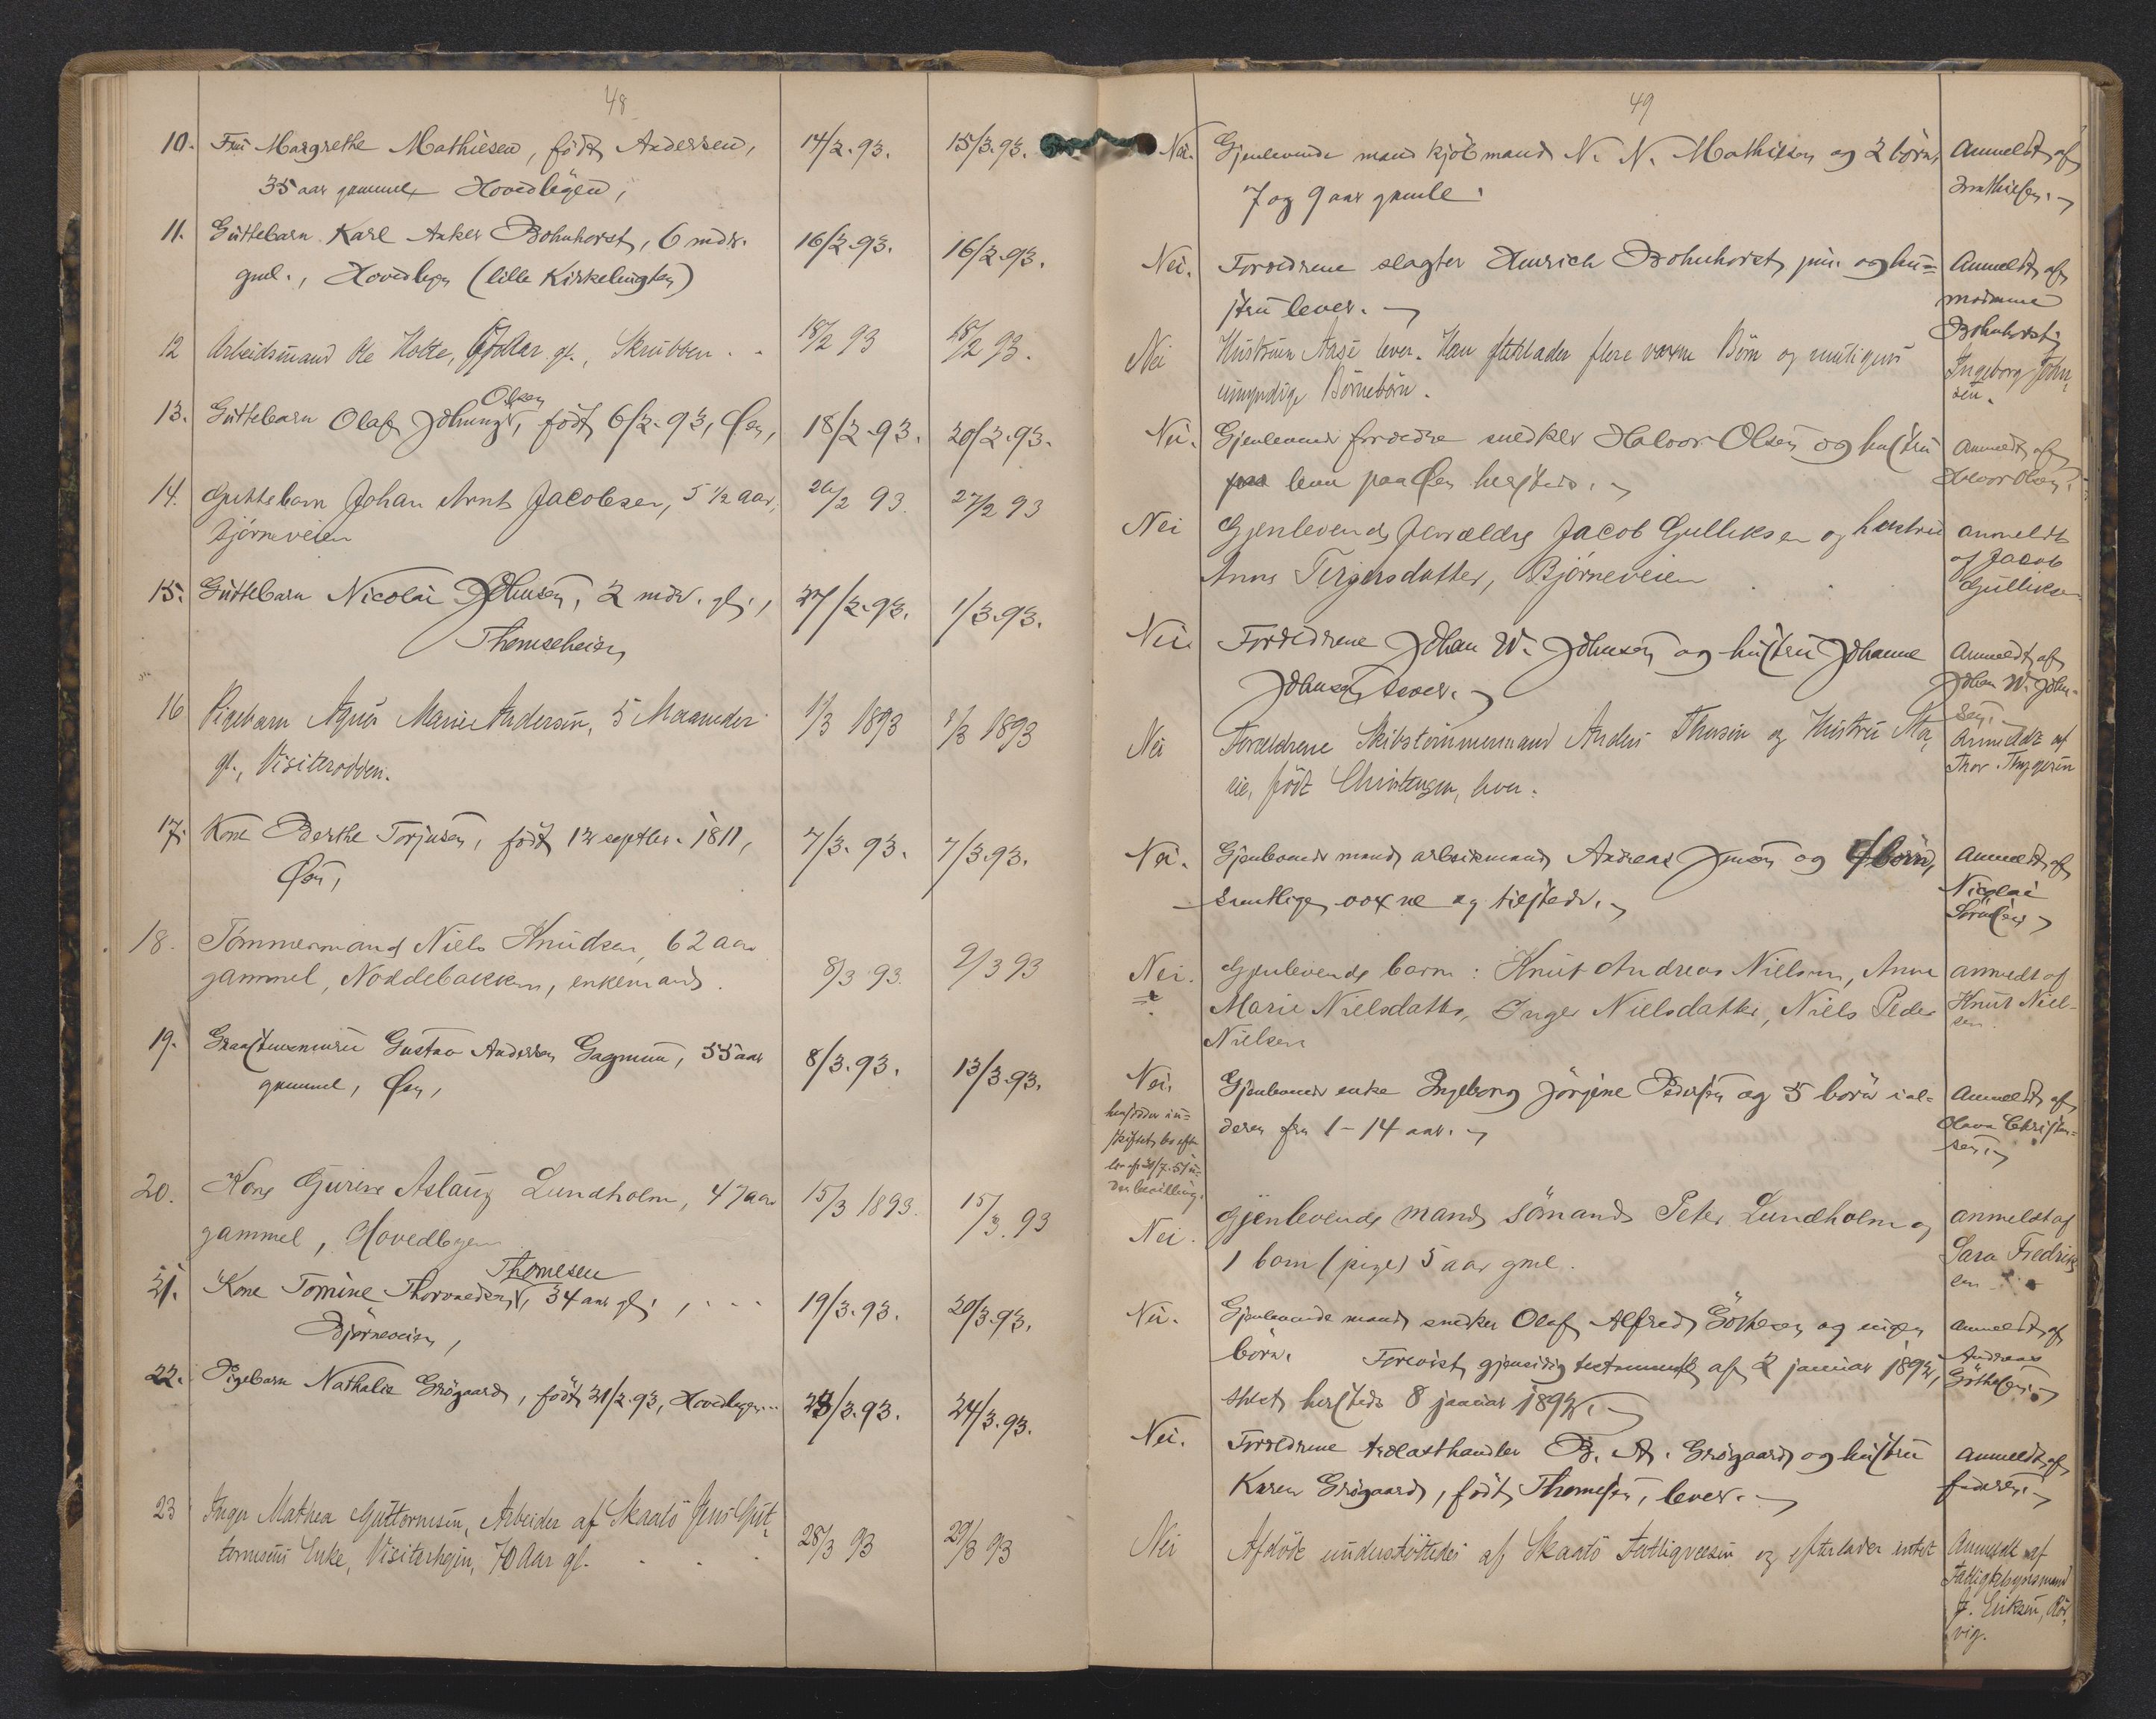 48
10. Fru Margrethe Mathiesen, født Andersen, 14/2.93. 15/2.93.
35 aar gammel, Hovedbyen,
11. Guttebarn Karl Anker Bohnhorst, 6 mdr. 16/2.93. 16/2.93.
gml., Hovedbyen (lille Kirkelungten)
12 Arbeidsmand Ole Holte, Aar gl., Skrubben. 18/2 93 18/2 93.
Olsen
13. Guttebarn Olaf, født 6/2.93, Øen, 18/2.93. 20/2.93.
14. Guttebarn Johan Arnt Jacobsen, 5 1/2 aar, 26/2 93. 27/2 93
Bjørneveien
15. Guttebarn Nicolai Johnsen, 2 mdr. gl., 27/2.93. 1/3.93.
Thomeseheien
16 Pigebarn Agnes Marie Andersen, 5 Maaneder 1/3 1893 1/3 1893
gl., Visiterodden.
17. Kone Berthe Torjusen, født 12 septbr. 1811, 7/3.93. 7/3.93.
Øen,
18. Tømmermand Niels Knudsen, 62 aar 8/3 93. 9/3 93
gammel, Noddebakken, enkemand.
19. Gustav Andersen Gagnum, 55 aar 8/3.93. 13/3.93.
gammel, Øen,
20. Kone Gurine Aslaug Lundholm, 47 aar 15/3 1893. 15/3.93
gammel, Hovedbyen
Thomesen
21. Kone Tomine, 34 aar gl., 19/3.93. 20/3.93.
Bjørneveien,
22. Pigebarn Nathalie Grögaard, født 21/2.93, Hovedbyen 23/3.93. 24/3.93.
23 Inger Mathea Guttormsen, Arbeider af Skaatö Jens Gut- 28/3 93 29/3 93
tormsens Enke, Visiterheien, 70 Aar gl.
49
Nei. Gjenlevende mand kjöbmand N. N. Mathiesen og 2 börn, Anmeldt af
7 og 9 aar gamle. Mathiesen.
Nei. Forældrene slagter Hinrich Bohnhorst jun. og hu= Anmeldt af
stru lever. madame
Bohnhorst
Nei Hustruen Aase lever. Han efterlader flere voxne Börn og muligens Ingeborg John-
umyndige Börnebörn. sen.
Nei. Gjenlevende forældre snedker Halvor Olsen og hustru Anmeldt af
leve paa Øen hersteds. Halvor Olsen.
Nei Gjenlevende forældre Jacob Gulliksen og hustru anmeldt
Anne Tergersdatter, Bjørneveien af Jacob
Gulliksen
Nei. Forældrene Johan W. Johnsen og hustru Johanne Anmeldt af
Johnsen lever. Johan W. John-
sen.
Nei Forældrene Skibstømmermand Anders Thorsen og Hustru Ma- Anmeldt af
rie, født Christensen, lever. Thor Thygesen
Nei. Gjenlevende mand arbeidsmand Andreas Jensen og börn, Anmeldt af
samtlige voxne og tilstede. Nicolai
Nei. Gjenlevende barn: Knut Andreas Nielsen, Anne anmeldt af
Marie Nielsdatter, Inger Nielsdatter, Niels Peder Knut Niel-
Nielsen sen.
Nei. Gjenlevende enke Ingeborg Jörgine Pedersen og 5 börn i al= Anmeldt af
deren fra 1-14 aar. Olava Christen=
sen
Nei. Gjenlevende mand sömand Peter Lundholm og anmeldt af
1 barn (pige) 5 aar gml. Sara Fredrik-
sen
Nei. Gjenlevende mand snedker Olaf Alfred Göthesen og ingen Anmeldt af
börn. Forevist gjensidig testamente af 2 januar 1892, Andreas
hersteds 8 januar 1892. Göthesen.
Nei. Forældrene trælasthandler B. A. Grögaard og hustru Anmeldt af
Karen Grögaard, født Thomesen, lever. faderen.
Nei Afdöde understöttedes af Skaatö Fattigvæsen og efterlader intet Anmeldt af
Fattigtilsynsmand
J. Eriksen, Rör-
vig.